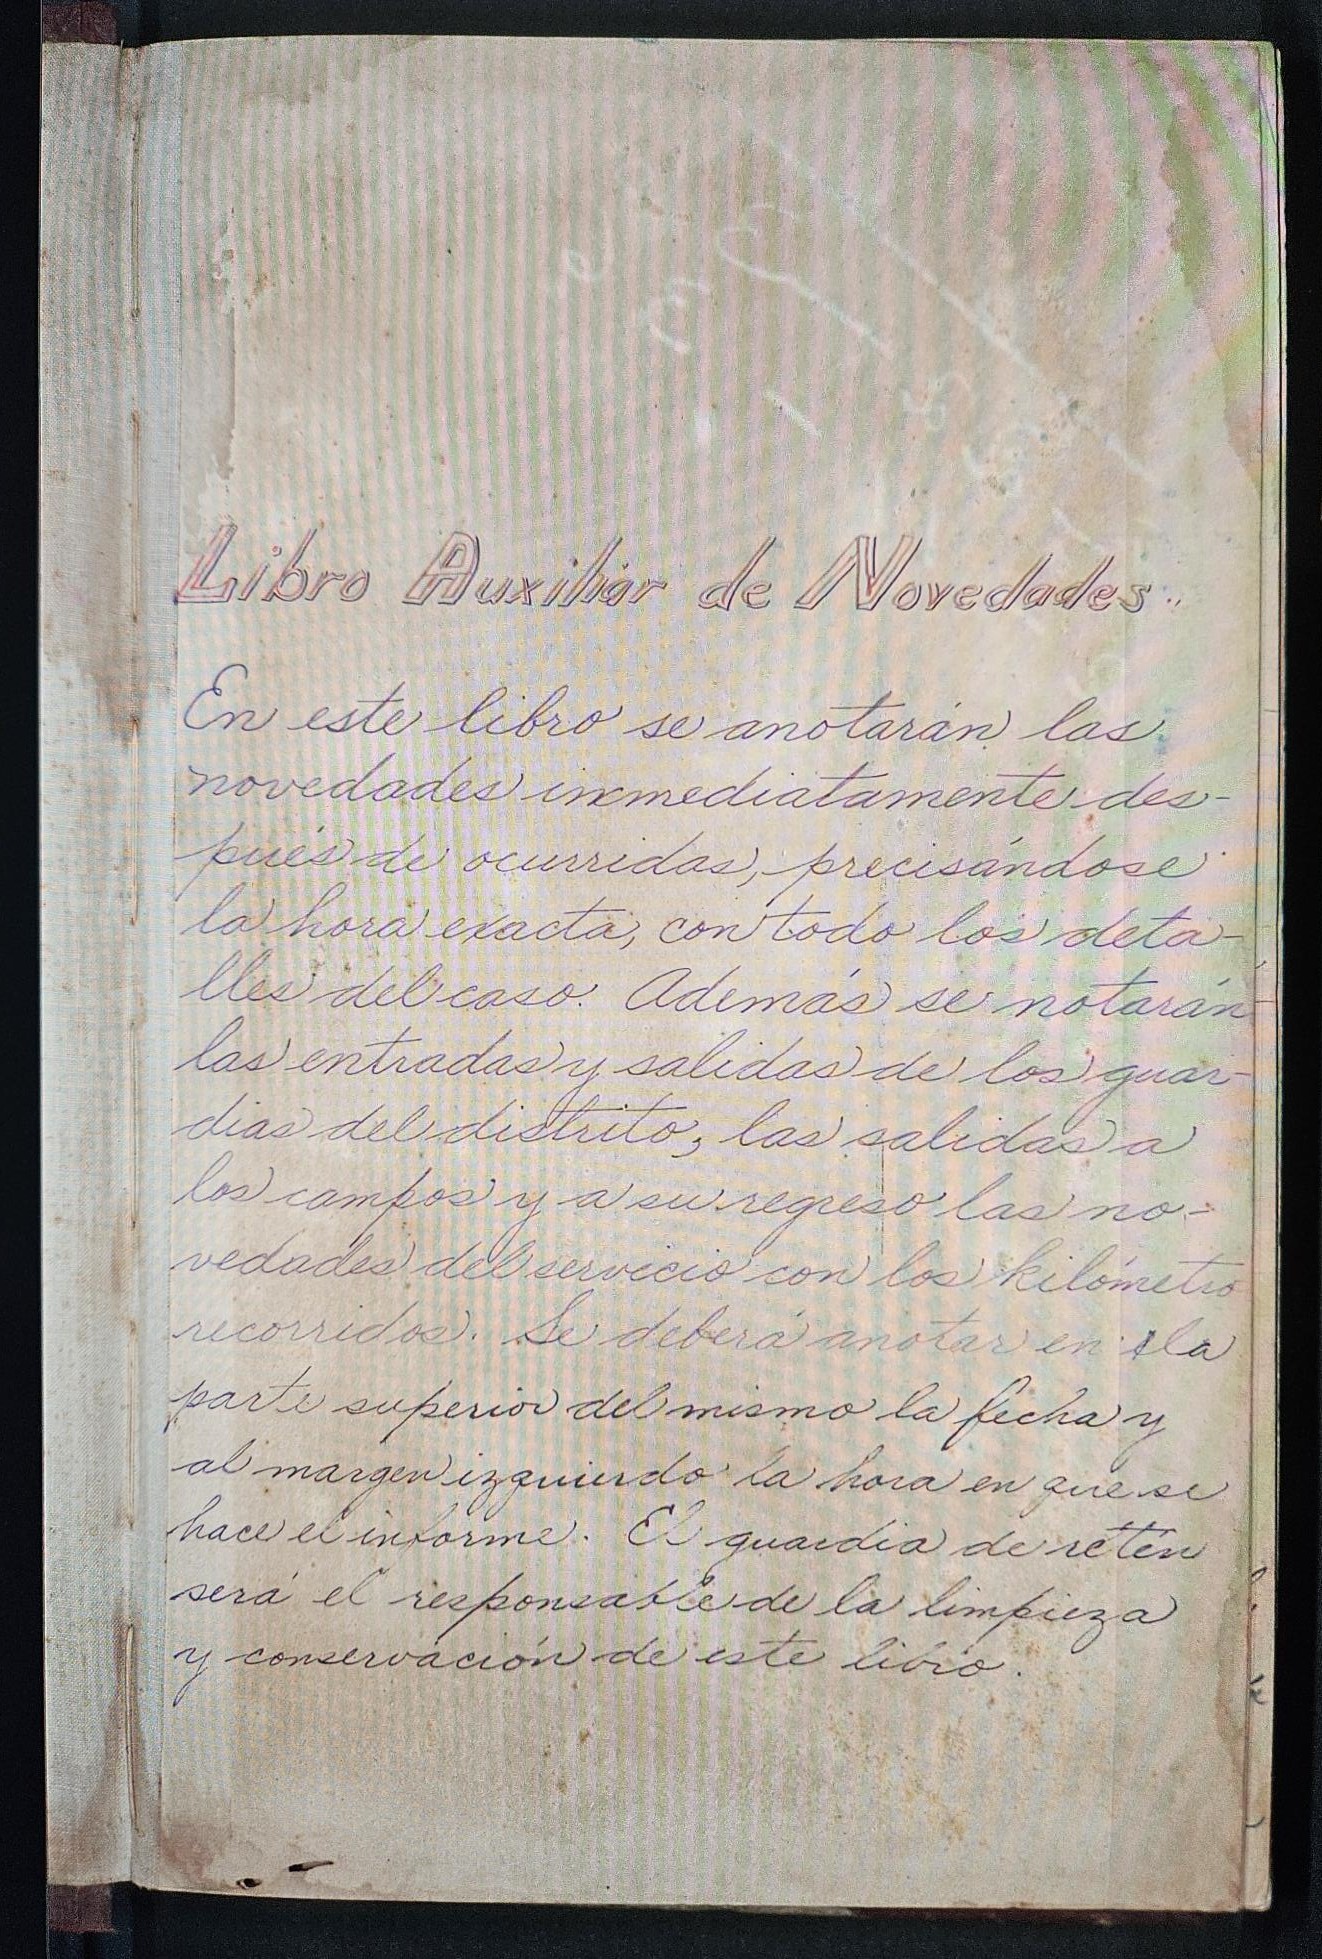 Libro Auxiliar de Novedades..
En este libro se anotarán las
novedades inmediatamente des-
pués de ocurridas, precisándose
la hora exacta, con todo los deta-
lles del caso. Además se notarán
las entradas y salidas de los guar-
dias del distrito, las salidas a
los campos y a su regreso las no-
vedades del servicio con los kilómetro
recorridos. Se deberá anotar en la
parte superior del mismo la fecha y
al margen izquierdo la hora en que se
hace el informe. El guardia de retén
será el responsable de la limpieza
y conservación de este libro.